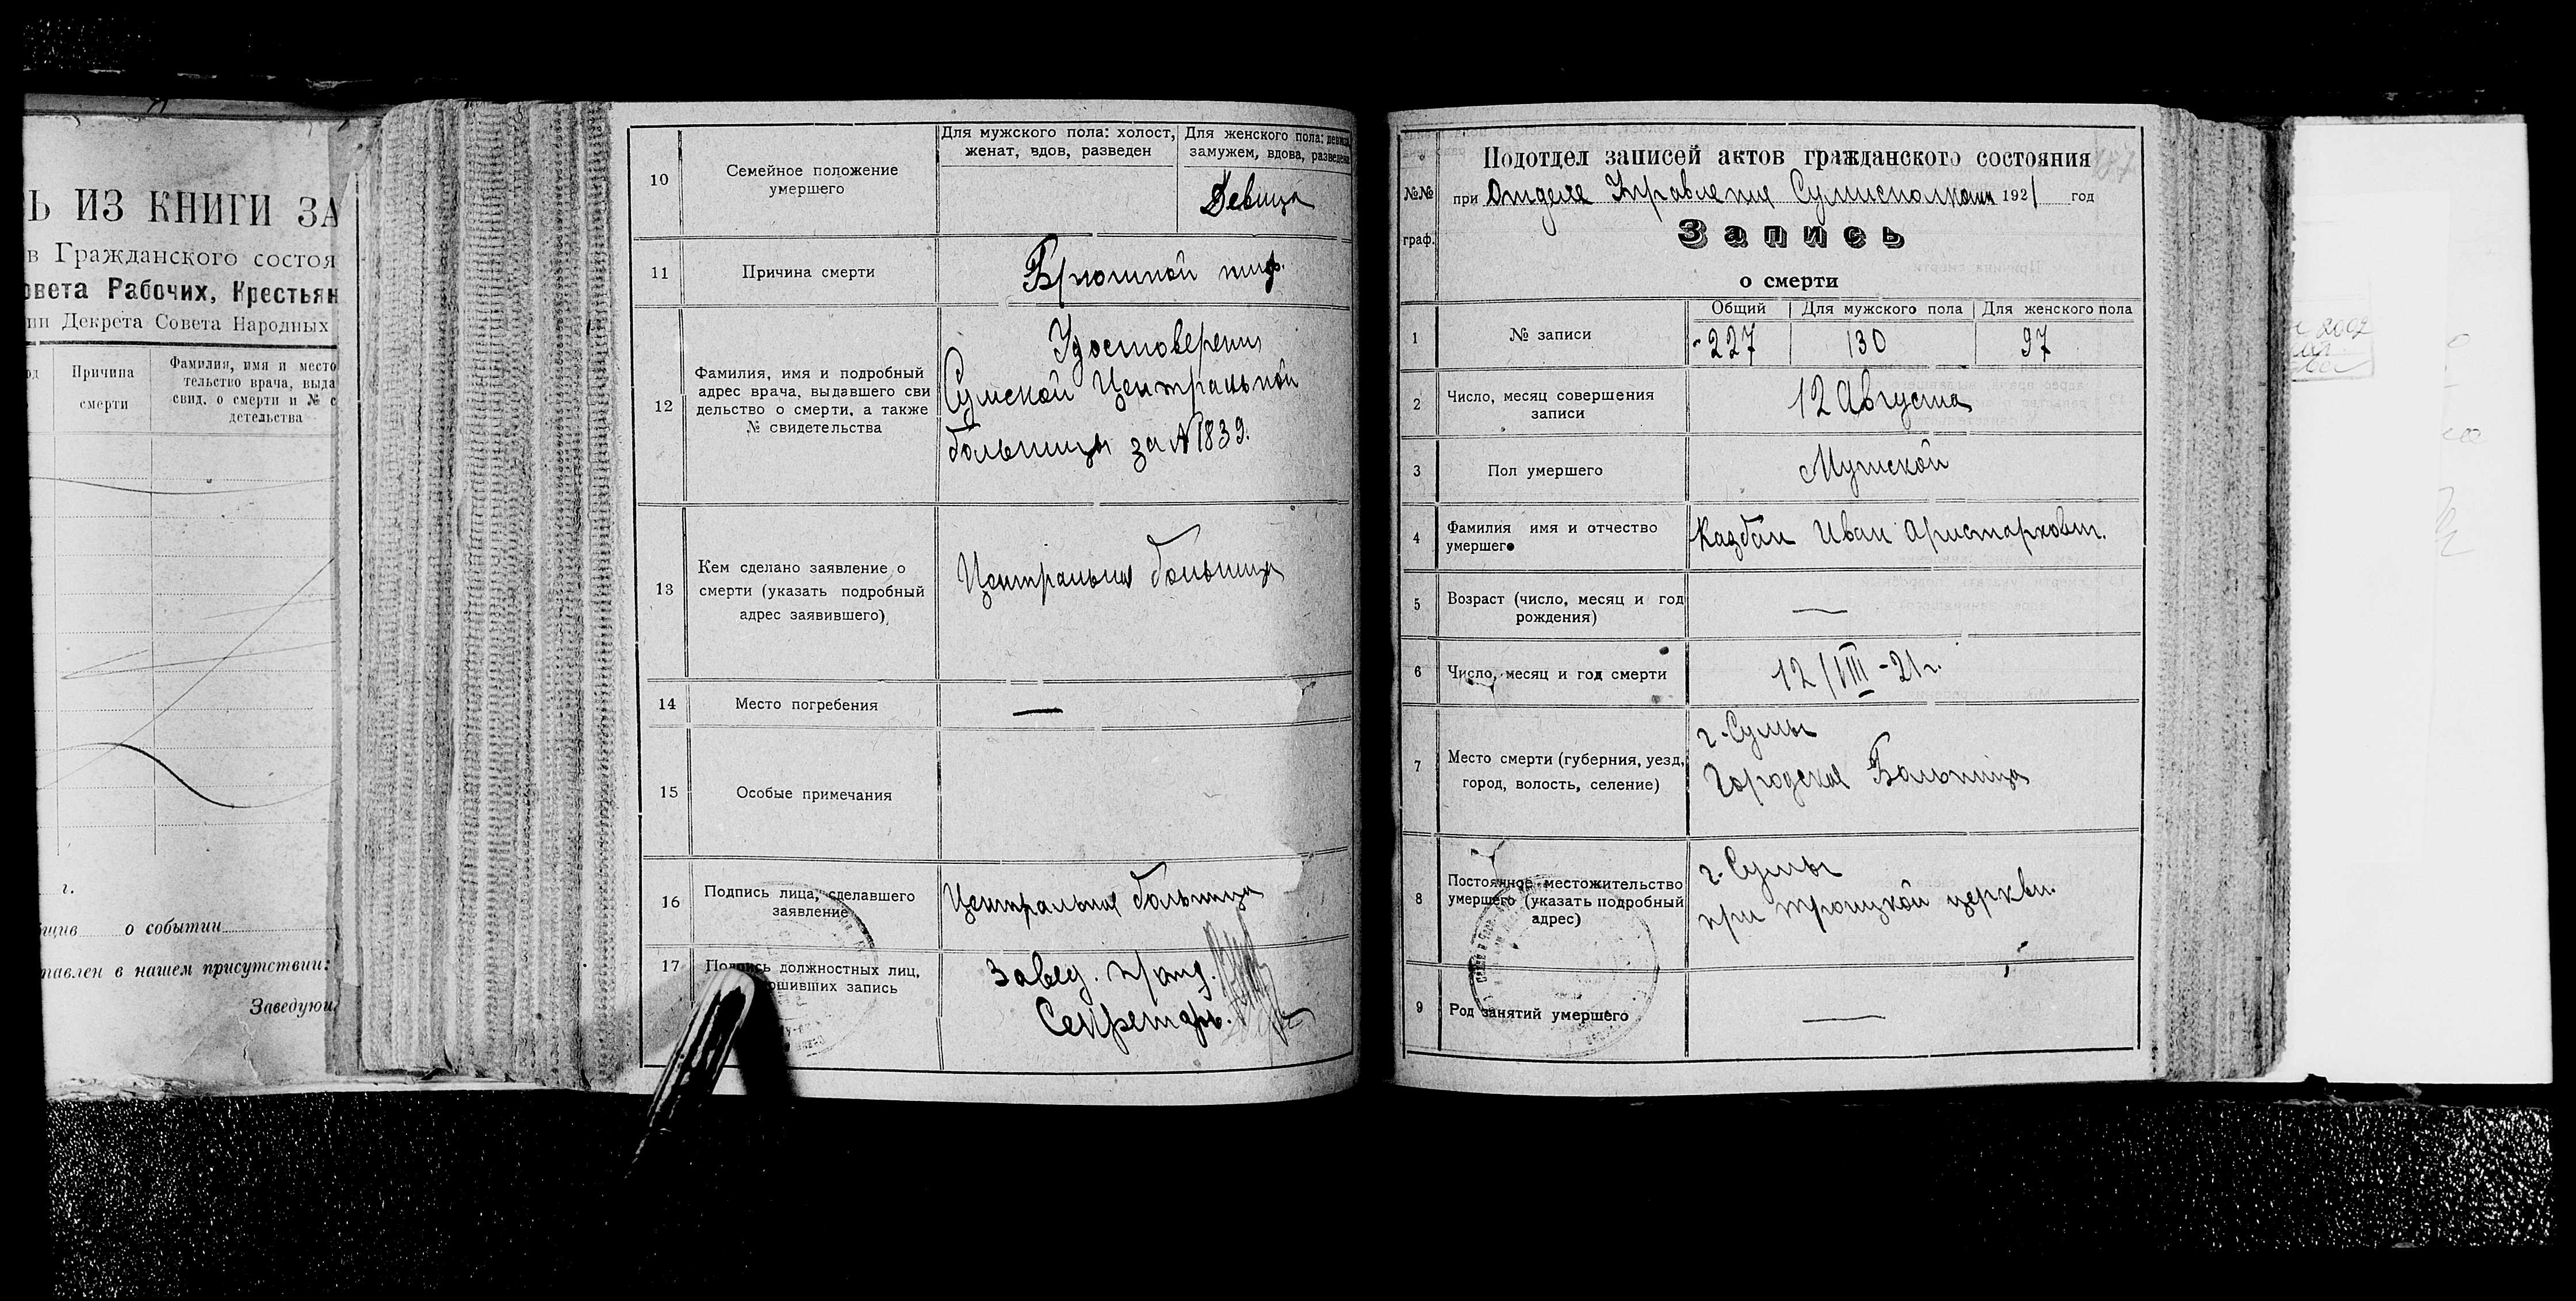 Ь ИЗ КНИГИ ЗА
в Гражданского состоя
овета Рабочих, Крестьян
ии Декрета Совета Народных
од
Причина
смерти
Фамилия, имя и место
тельство врача, выда
свид. о смерти и № с
детельства
г.
бщив о событии
тавлен в нашем присутствии:
Заведующ
10
Семейное положение
умершего
Для мужского пола: холост,
женат, вдов, разведен
Для женского пола: девица,
замужем, вдова, разведена
Девица
11
Причина смерти
Брюшной тиф.
12
Фамилия, имя и подробный
адрес врача, выдавшего сви
дельство о смерти, а также
№ свидетельства
Удостоверение
Сумской Центральной
больницы за №1839.
13
Кем сделано заявление о
смерти (указать подробный
адрес заявившего)
Центральная больница
14
Место погребения
—
15
Особые примечания
16
Подпись лица, сделавшего
заявление
Центральная больница
17
Подпись должностных лиц,
ошивших запись
Завед. п/отд.
Секретарь.
Подотдел записей актов гражданского состояния
№№
граф.
при Отделе Управления Сумисполкома 1921 год
Запись
о смерти
1
№ записи
Общий
Для мужского пола
Для женского пола
227
130
97
2
Число, месяц совершения
записи
12 Августа
3
Пол умершего
Мужской
4
Фамилия имя и отчество
умершего
Казбан Иван Аристархович.
5
Возраст (число, месяц и год
рождения)
—
6
Число, месяц и год смерти
12/VIII-21г.
7
Место смерти (губерния, уезд,
город, волость, селение)
г. Сумы
Городская Больница
8
Постоянное местожительство
умершего (указать подробный
адрес)
г. Сумы
при троицкой церкви.
9
Род занятий умершего
—